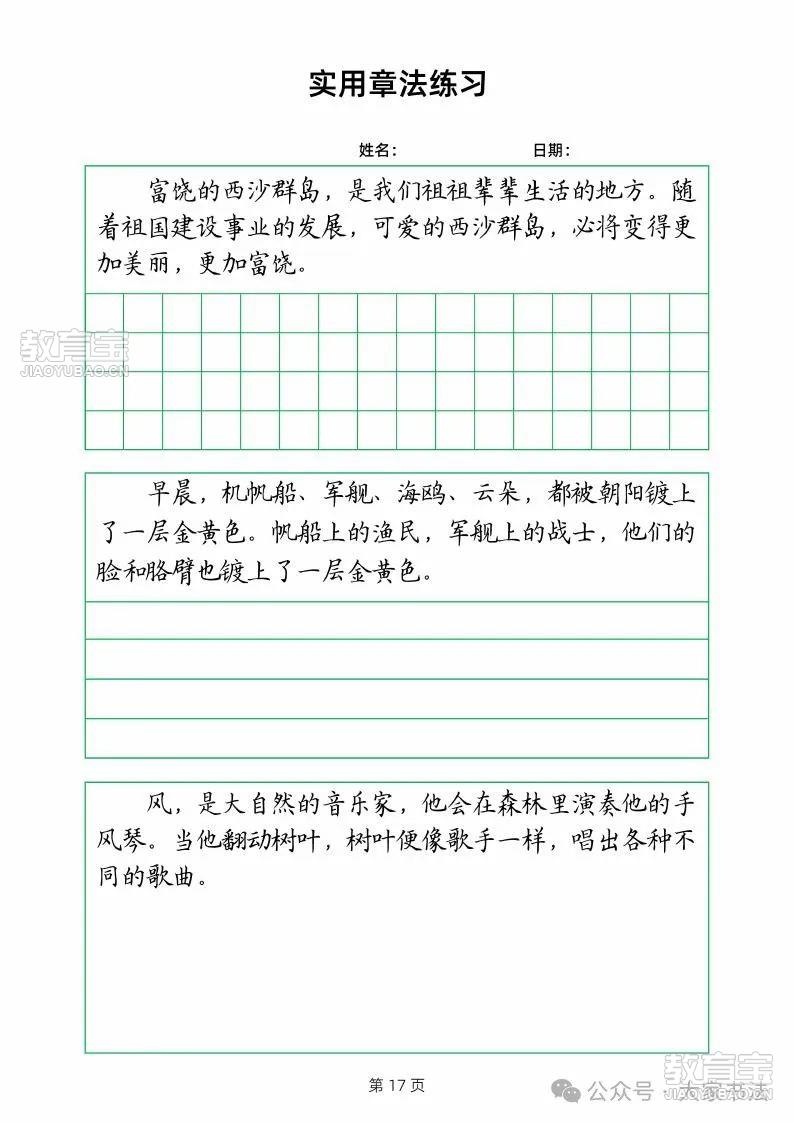 实用章法练习
姓名： 日期：
富饶的西沙群岛，是我们祖祖辈辈生活的地方。随
着祖国建设事业的发展，可爱的西沙群岛，必将变得更
加美丽，更加富饶。
教育宝
JIAOYUBAO.CN
早晨，机帆船、军舰、海鸥、云朵，都被朝阳镀上
了一层金黄色。帆船上的渔民，军舰上的战士，他们的
脸和胳臂也镀上了一层金黄色。
风，是大自然的音乐家，他会在森林里演奏他的手
风琴。当他翻动树叶，树叶便像歌手一样，唱出各种不
同的歌曲。
第 17 页
教育宝
JIAOYUBAO.CN
公众号·大家书法